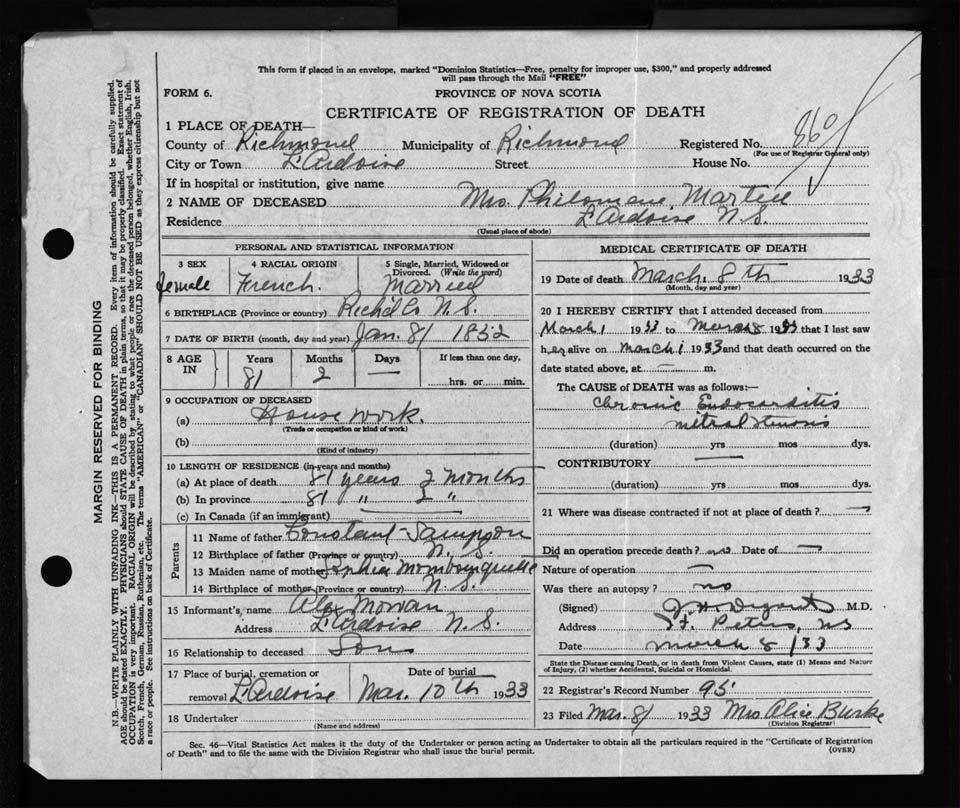 This form if placed in an envelope, marked "Dominion Statistics—Free, penalty for improper use, $300," and properly addressed
will pass through the Mail "FREE"
FORM 6.
PROVINCE OF NOVA SCOTIA
CERTIFICATE OF REGISTRATION OF DEATH
1 PLACE OF DEATH—
County of Richmond Municipality of Richmond Registered No. 860
(For use of Registrar General only)
City or Town L'Ardoise Street House No.
If in hospital or institution, give name
2 NAME OF DECEASED Mrs. Philomene Martell
Residence L'Ardoise N.S.
(Usual place of abode)
PERSONAL AND STATISTICAL INFORMATION
3 SEX 4 RACIAL ORIGIN 5 Single, Married, Widowed or
Divorced. (Write the word)
female French. Married
6 BIRTHPLACE (Province or country) Richd Co N.S.
7 DATE OF BIRTH (month, day and year) Jan. 8/ 1852
8 AGE IN Years Months Days If less than one day,
81 2 — hrs. or min.
9 OCCUPATION OF DECEASED
(a) House work.
(Trade or occupation or kind of work)
(b)
(Kind of industry)
10 LENGTH OF RESIDENCE (in years and months)
(a) At place of death 81 years 2 months
(b) In province 81 " 2 "
(c) In Canada (if an immigrant)
Parents
11 Name of father Constant Sampson
12 Birthplace of father (Province or country) N. S.
13 Maiden name of mother Sophia Mombourquette
14 Birthplace of mother (Province or country) N. S.
15 Informant's name Alex
Address L'Ardoise N.S.
16 Relationship to deceased Son
17 Place of burial, cremation or Date of burial
removal L'Ardoise Mar. 10th 1933
18 Undertaker
(Name and address)
MEDICAL CERTIFICATE OF DEATH
19 Date of death March. 8th 1933
(Month, day and year)
20 I HEREBY CERTIFY that I attended deceased from
March 1 1933 to March 8 1933 that I last saw
her alive on March 1 1933 and that death occurred on the
date stated above, at — m.
The CAUSE of DEATH was as follows:—
Chronic Endocarditis
mitral stenosis
(duration) yrs mos dys.
CONTRIBUTORY —
(duration) yrs mos dys.
21 Where was disease contracted if not at place of death? —
Did an operation precede death? no Date of —
Nature of operation —
Was there an autopsy? no
(Signed) M.D.
Address St. Peters, NS
Date March 8/33
State the Disease causing Death, or in death from Violent Causes, state (1) Means and Nature
of Injury, (2) whether Accidental, Suicidal or Homicidal.
22 Registrar's Record Number 95
23 Filed Mar. 8/ 1933 Mrs Alice Burke
(Division Registrar)
Sec. 46—Vital Statistics Act makes it the duty of the Undertaker or person acting as Undertaker to obtain all the particulars required in the "Certificate of Registration
of Death" and to file the same with the Division Registrar who shall issue the burial permit.
(OVER)
MARGIN RESERVED FOR BINDING
N.B.—WRITE PLAINLY WITH UNFADING INK—THIS IS A PERMANENT RECORD. Every item of information should be carefully supplied.
AGE should be stated EXACTLY. PHYSICIANS should STATE CAUSE OF DEATH in plain terms, so that it may be properly classified. Exact statement of
OCCUPATION is very important. RACIAL ORIGIN will be described by stating to what people or race the deceased person belonged, whether English, Irish,
Scotch, French, German, Russian, Ruthenian, etc. The terms "AMERICAN" or "CANADIAN" SHOULD NOT BE USED as they express citizenship but not
a race or people. See instructions on back of Certificate.